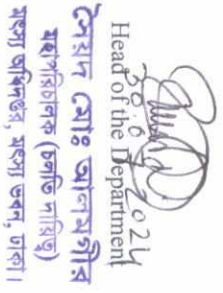 30.6.2024
Head of the Department
সৈয়দ মোঃ আলমগীর
মহাপরিচালক (চলতি দায়িত্ব)
মৎস্য অধিদপ্তর, মৎস্য ভবন, ঢাকা।